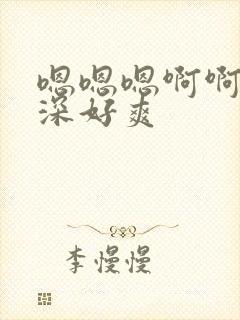 嗯嗯嗯啊啊
深好爽
李慢慢